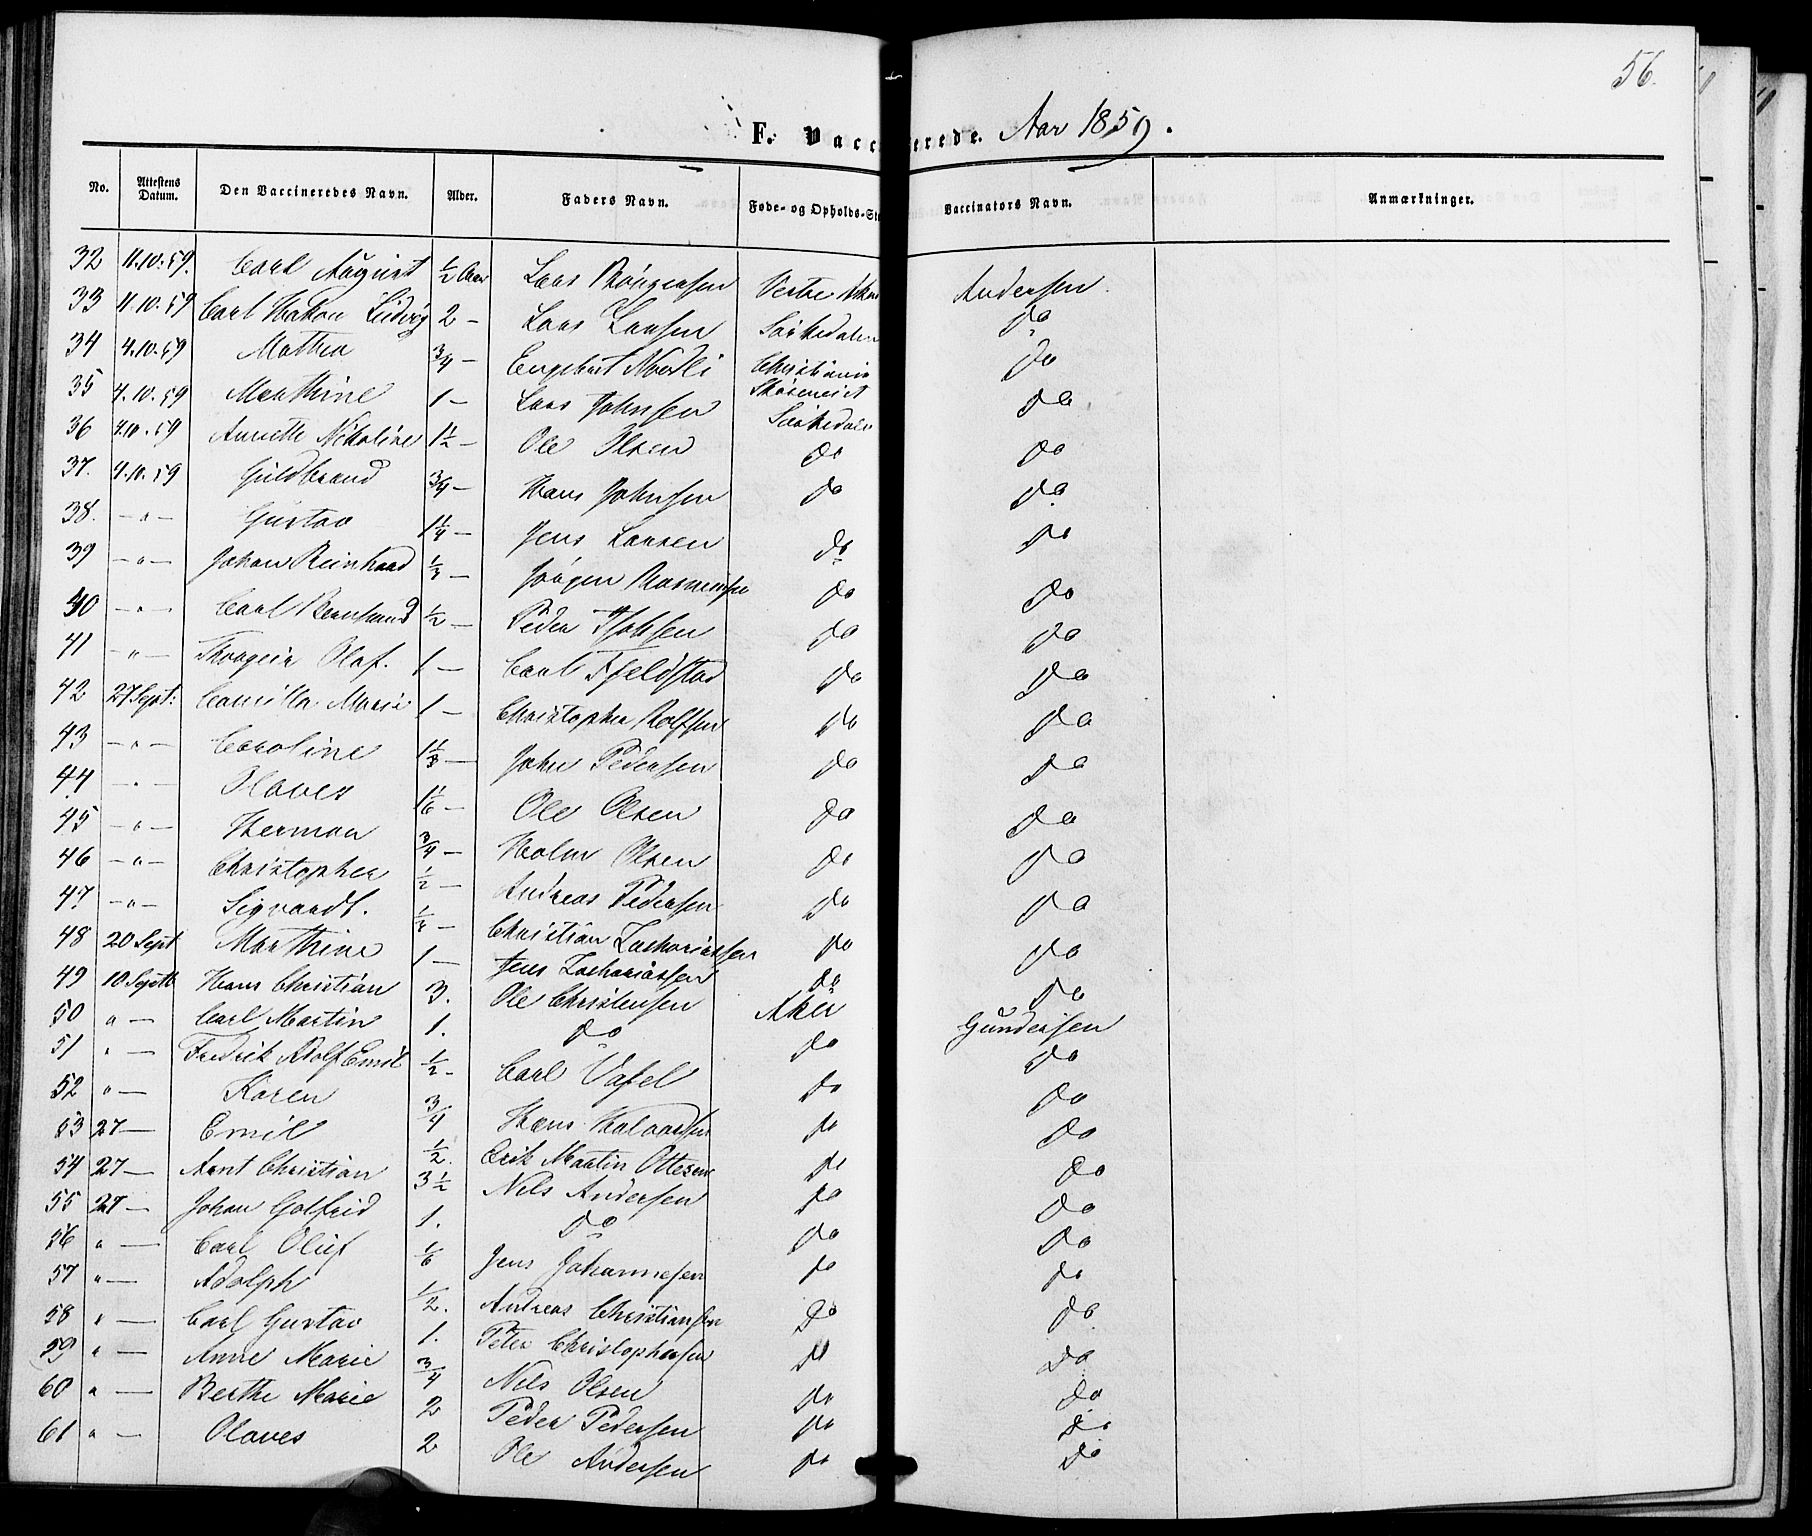 56.
F. Vaccinerede. Aar 1859.
No. Attestens Datum. Den Vaccineredes Navn. Alder. Faders Navn. Føde- og Opholds-St Vaccinators Navn. Anmærkninger.
32 11.10.59. Carl August ½ Aar Lars Vestre Andersen.
33 11.10.59 Carl Hakon Ludvig 2 – Lars Larsen Sørkedalen do
34 4.10.59 Mathea ¾ – Engebret Christiania do
35 4.10.59 Marthine 1 – Lars Johnsen Sørkedalen do
36 4.10.59 Annette Nikoline 1½ – Ole Olsen do do
37. 4.10.59 Guldbrand ¾ – Hans Johnsen do do
38. – " – Gustav 1¼ – Jens Larsen do do
39 – " – Johan Reinhard – Jørgen do do
40 – " – Carl Bernhard ½ – Peder do do
41 – " – Olaf. 1 – Carl Fjeldstad do do
42 27 Sept: Camilla Marie 1 – Christopher Rolfsen do do
43 – " – Caroline 1⅓ – John Pedersen do do
44 – " – Olaves 1⅙ – Ole Olsen do do
45 – " – Herman ¾ – Holm Olsen do do
46 – " – Christopher ½ – Andreas Pedersen do do
47 – " – Sigvardt. – Christian Zachariassen do do
48 20 Sept Marthine 1 – Jens Zachariassen do do
49 10 Septb Hans Christian 3. Ole Christensen Aker Gundersen
50 " – Carl Martin 1. do do do
51 " – Fredrik Adolf Emil ½ – Carl do do
52 " – Karen ¾ Hans do do
53 27 – Emil ½. Erik Martin Ottesen do do
54 27 – Arnt Christian 3½ Nils Andersen do do
55 27 – Johan Gotfrid 1. do do do
56 " – Carl Oluf ⅙ Jens Johannesen do do
57 " – Adolph ½. Andreas Christiansen do do
58 " – Carl Gustav 1. Peter Christophersen do do
59 " – Anne Marie ¾ Nils Olsen do do
60 " – Berthe Marie 2 Peder Pedersen do do
61 " – Olaves 2 Ole Andersen do do